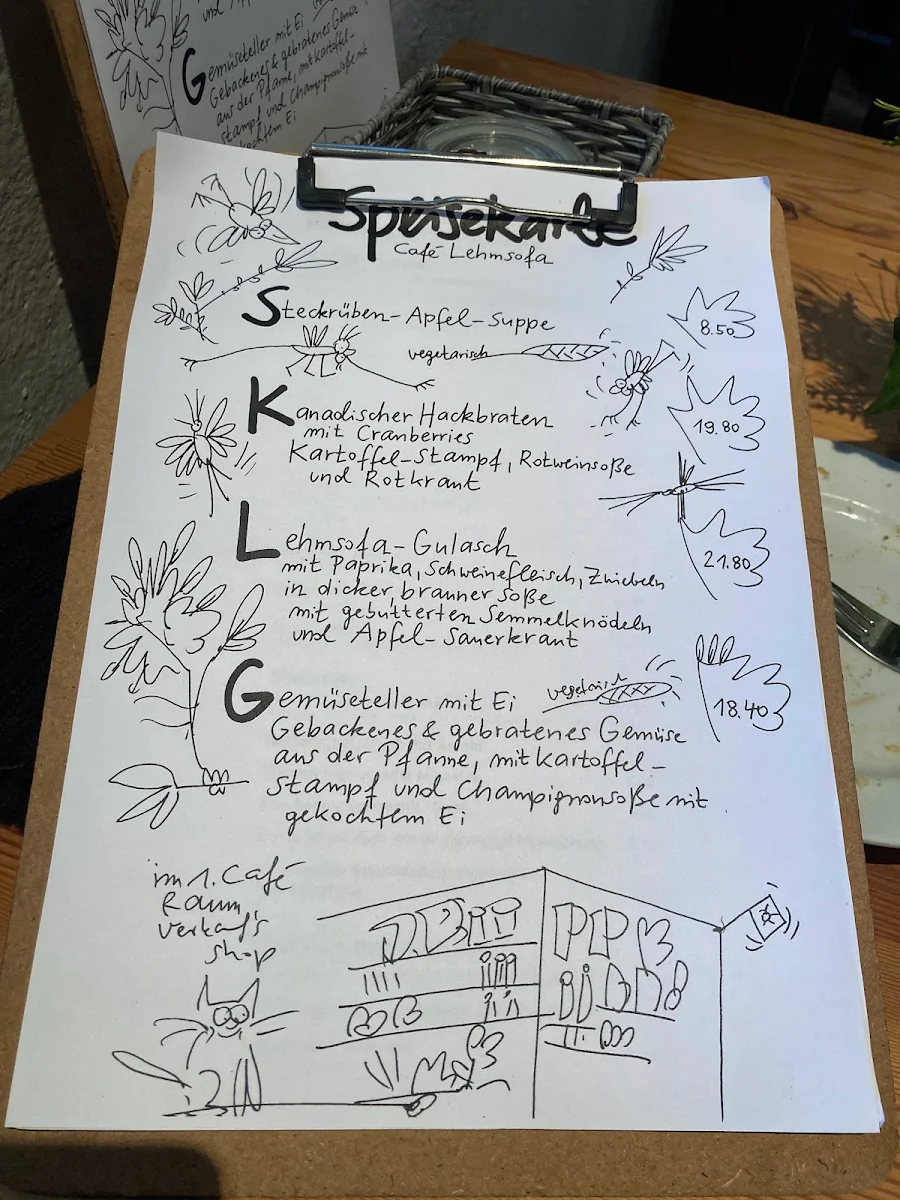 und
Gemüseteller mit Ei
Gebackenes & gebratenes Gemüse
aus der Pfanne, mit Kartoffel-
stampf und Champignonsoße mit
kochtem Ei
Speisekarte
Café Lehmsofa
Steckrüben-Apfel-Suppe
8.50
vegetarisch
Kanadischer Hackbraten
mit Cranberries
19.80
Kartoffel-Stampf, Rotweinsoße
und Rotkraut
Lehmsofa-Gulasch
mit Paprika, Schweinefleisch, Zwiebeln
21.80
in dicker brauner Soße
mit gebutterten Semmelknödeln
und Apfel-Sauerkraut
Gemüseteller mit Ei
vegetarisch
18.40
Gebackenes & gebratenes Gemüse
aus der Pfanne, mit Kartoffel-
stampf und Champignonsoße mit
gekochtem Ei
im 1. Café
Raum
verkaufs
shop